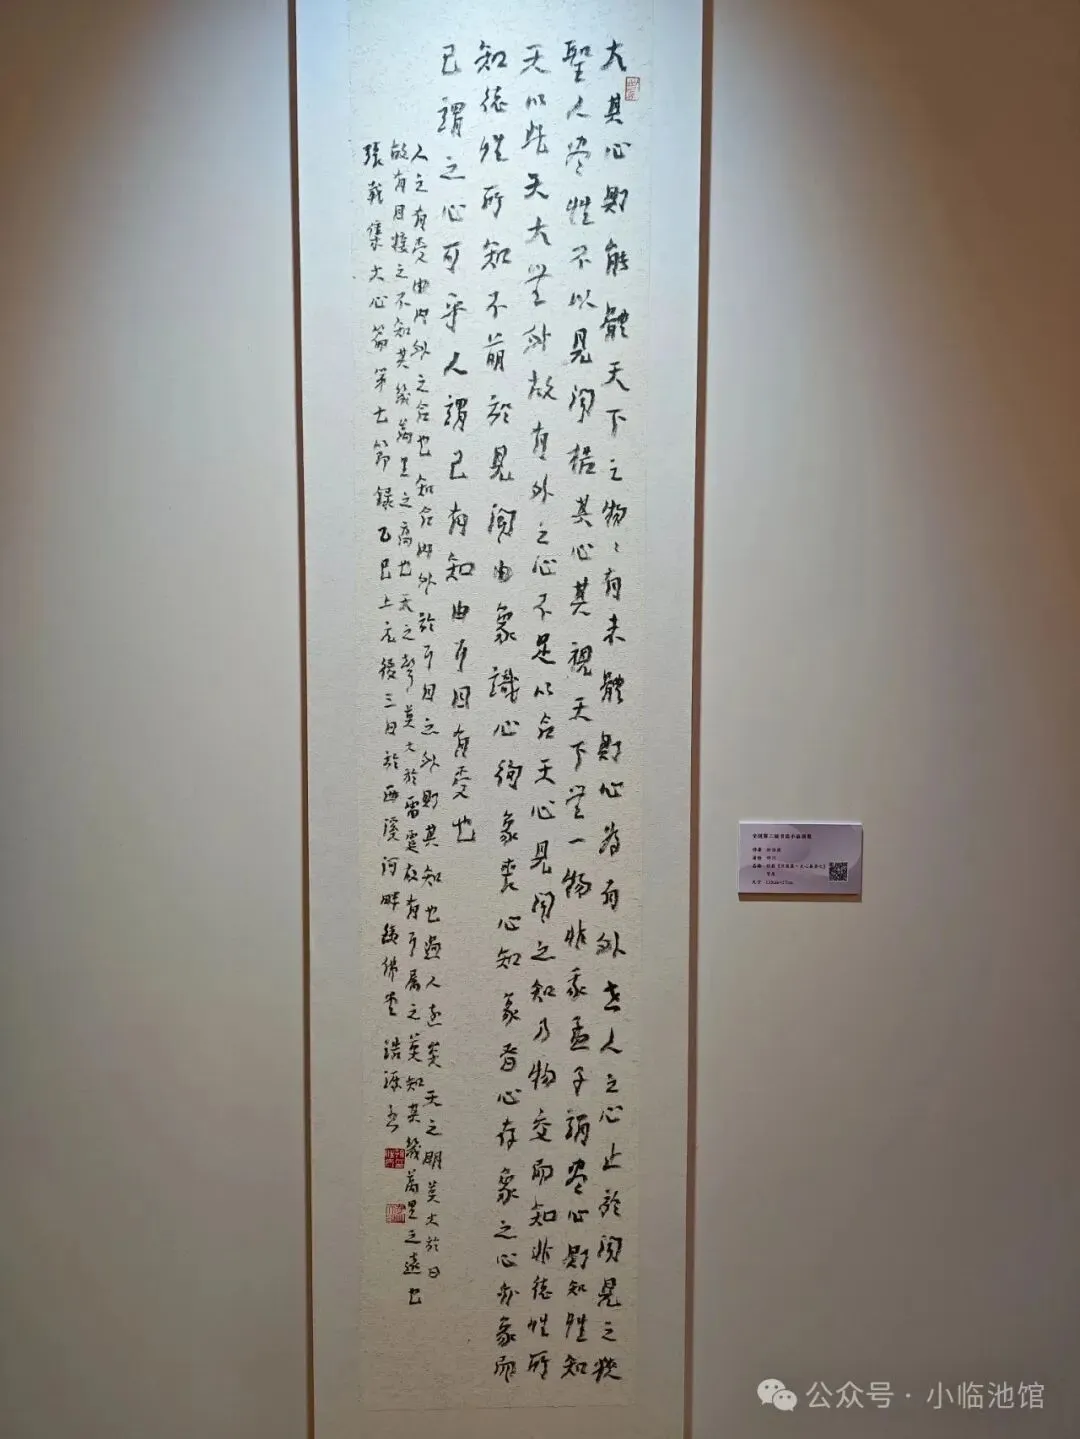 大其心則能體天下之物〻有未體則心為有外世人之心止於聞見之狹
聖人盡性不以見聞梏其心其視天下無一物非我孟子謂盡心則知性知
天以此天大無外故有外之心不足以合天心見聞之知乃物交而知非德性所
知德性所知不萌於見聞由象識心徇象喪心知象者心存象之心亦象而
已謂之心可乎人謂己有知由耳目有受也
人之有受由內外之合也知合內外於耳目之外則其知也過人遠矣天之明莫大於日
故有目接之不知其幾萬里之高也天之聲莫大於雷霆故有耳屬之莫知其幾萬里之遠也
張載集大心篇第七節錄乙巳上元後三日於西溪河畔 佛堂 浩源書
全国第三届书法小品展览
公众号·小临池馆